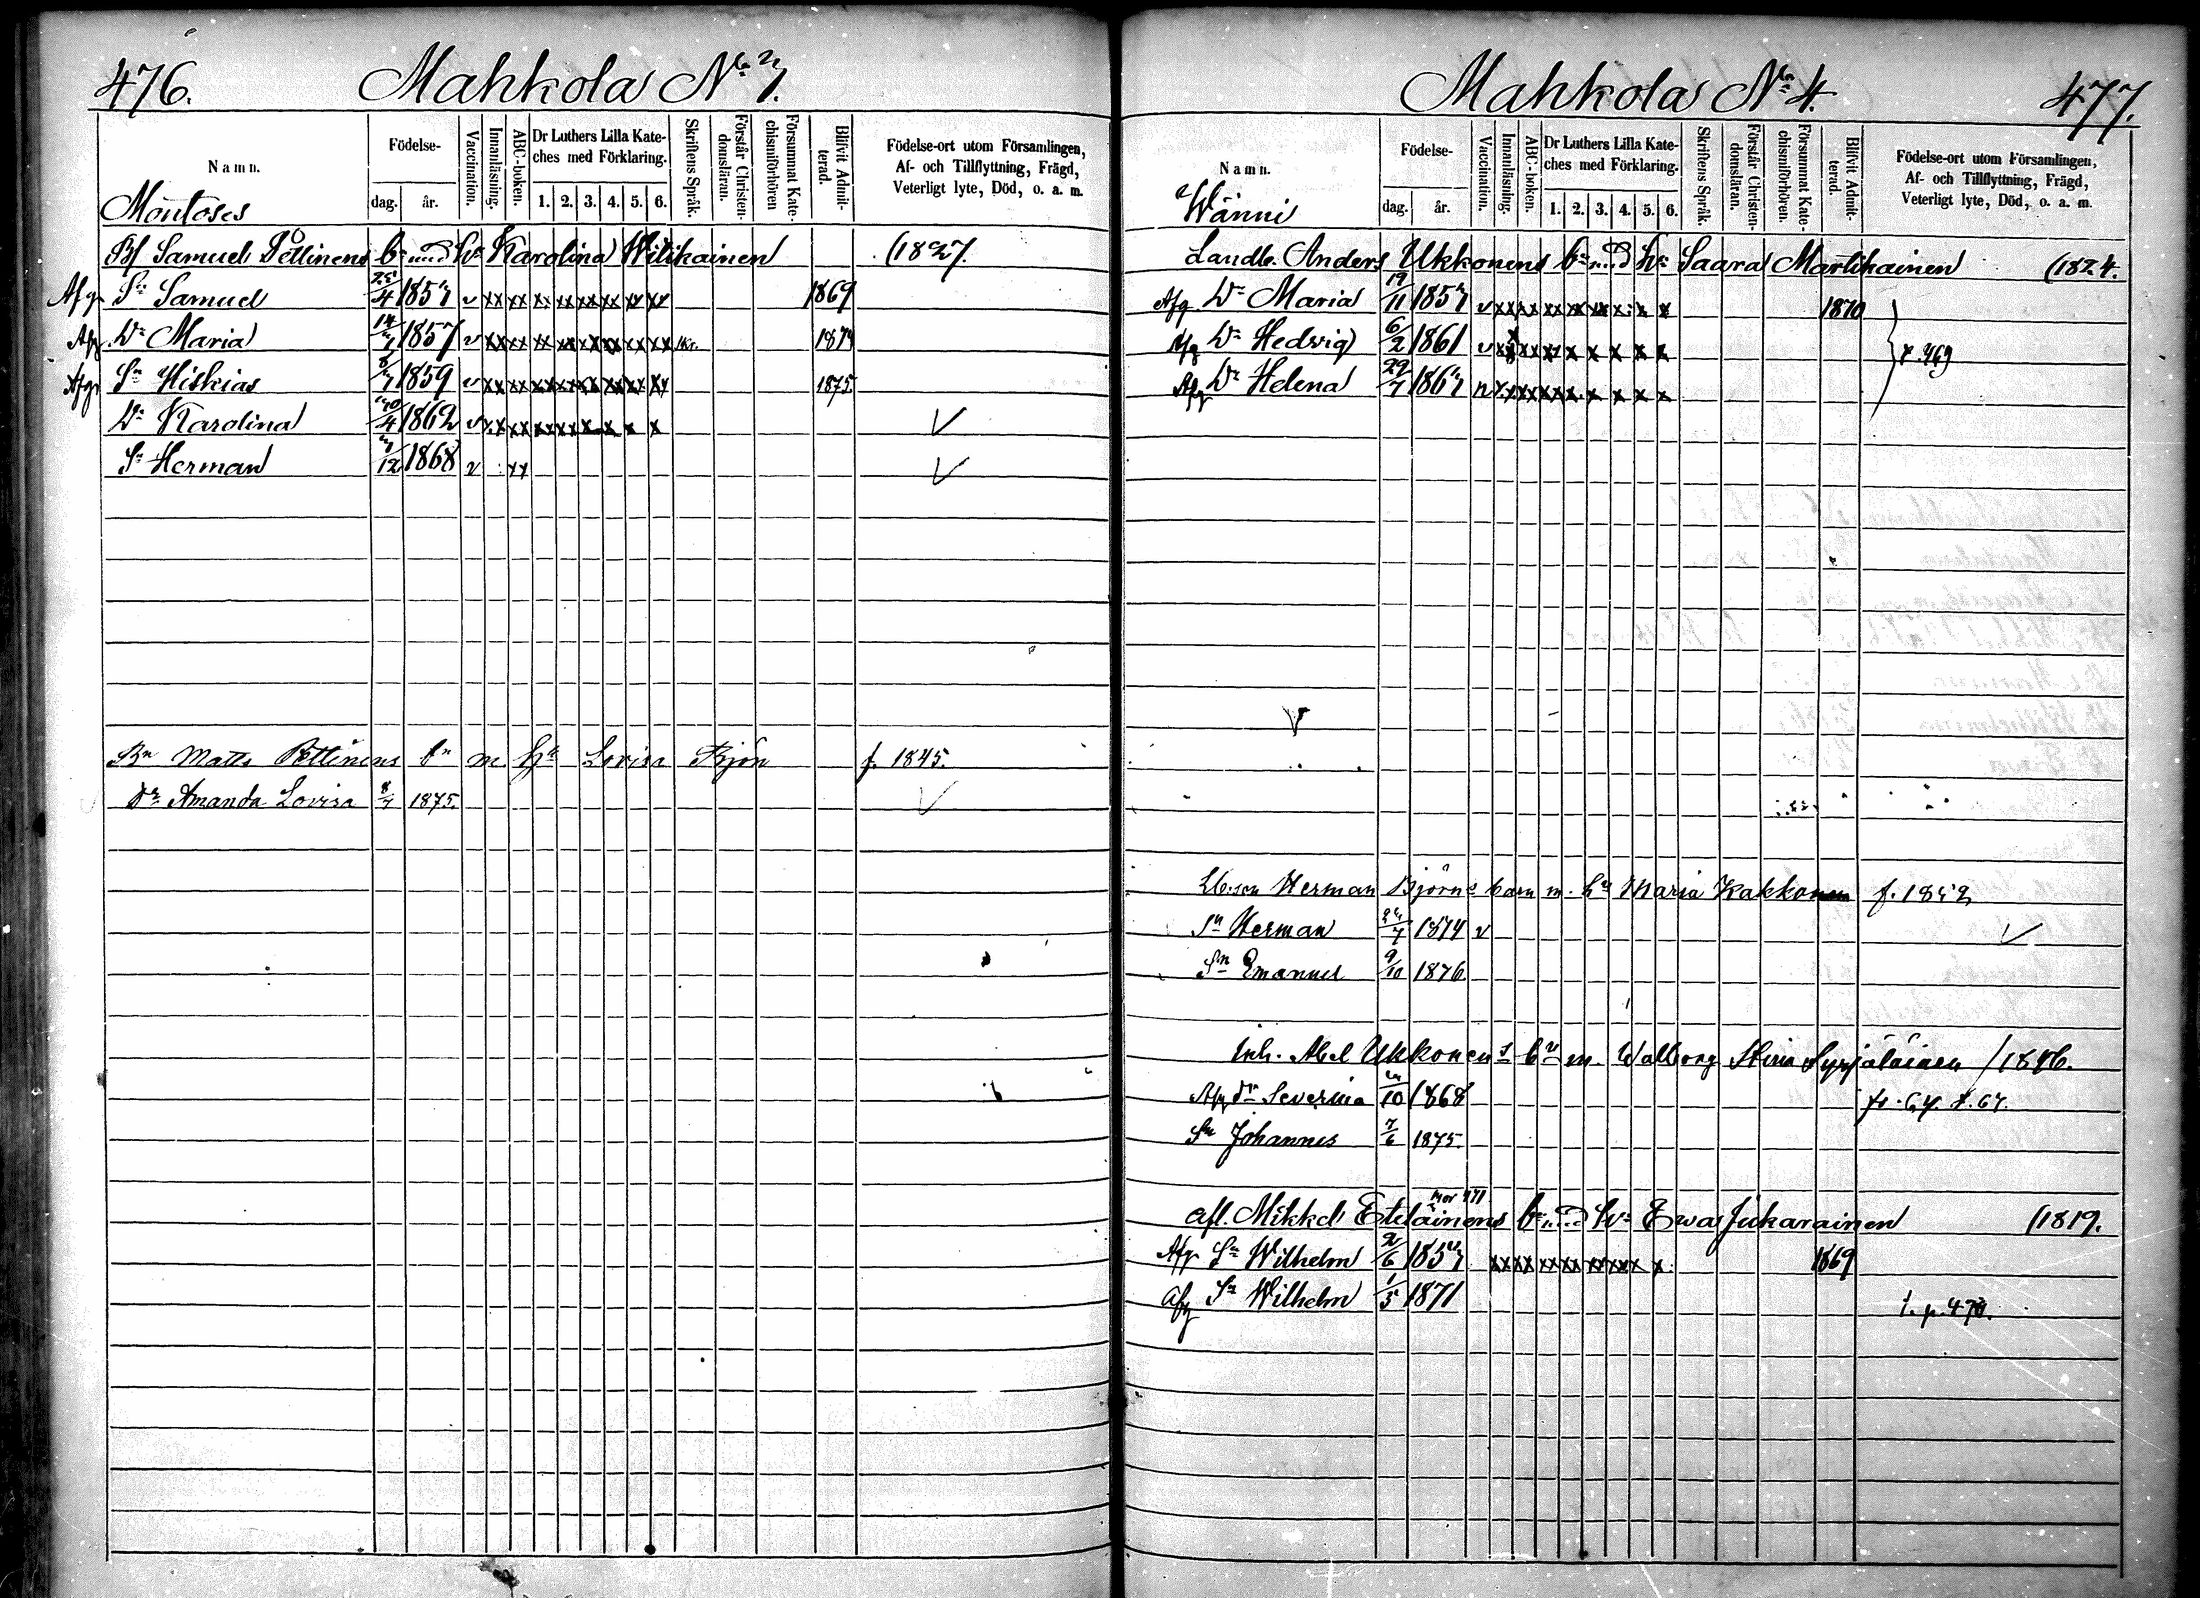 476. Mahkola No 7.
Namn.
Födelse-
dag. år.
Vaccination.
Innanläsning.
ABC-boken.
Dr Luthers Lilla Kate-
ches med Förklaring.
1. 2. 3. 4. 5. 6.
Skriftens Språk.
Förstår Christen-
domsläran.
Försummat Kate-
chismiförhören
Blifvit Admit-
terad.
Födelse-ort utom Församlingen,
Af- och Tillflyttning, Frägd,
Veterligt lyte, Död, o. a. m.
Montoses
Samuel Pöllinens bn med Hu Karolina Wilikainen (1827.
Afg Sn Samuel 25/4 1857 v xx xx xx xx xx xx xx xx 1869
Afg Dr Maria 1857 v xx xx xx xx xx xx xx xx
Afg Sn Hiskias 1859 v xx xx xx xx xx xx xx xx 1875
Dr Karolina 1862 v xx xx xx xx x x x x V
Sn Herman 12 1868 v xx V
Bn Matts Pöllinens bn m Hu Lovisa Björn f. 1845.
Dr Amanda Lovisa 8/7 1875. V
Mahkola No 4. 477.
Namn.
Födelse-
dag. år.
Vaccination.
Innanläsning.
ABC-boken.
Dr Luthers Lilla Kate-
ches med Förklaring.
1. 2. 3. 4. 5. 6.
Skriftens Språk.
Förstår Christen-
domsläran.
Försummat Kate-
chismiförhören.
Blifvit Admit-
terad.
Födelse-ort utom Församlingen,
Af- och Tillflyttning, Frägd,
Veterligt lyte, Död, o. a. m.
Wänni
Landb. Anders Ukkonens bn med Hu Saara Martikainen (1824.
Afg. Dr Maria 19/11 1857 v xx xx xx xx xx x x x 1870
Afg Dr Hedvig 6/2 1861 v xx xx xx x x x x x p. 469
Afg Dr Helena 29/7 1867 v x xx xx x x x x x
V
Lb.son Herman Björns barn m. Hu Maria Kakkonen f. 1852
Sn Herman 7 1874 v V
Sn Emanuel 9/10 1876
Inh. Abel Ukkonens bn m. Walborg Stina Syrjäläinen /1846.
Afg Dr Severina 10 1868
Sn Johannes 7/6 1875.
Afl. Mikkel Eteläinens bn med Hu Ewa Jukarainen (1819.
Afg Sn Wilhelm 2/6 1857 xx xx xx xx xx xx x x 1869
Afg Sn Wilhelm 1/5 1871